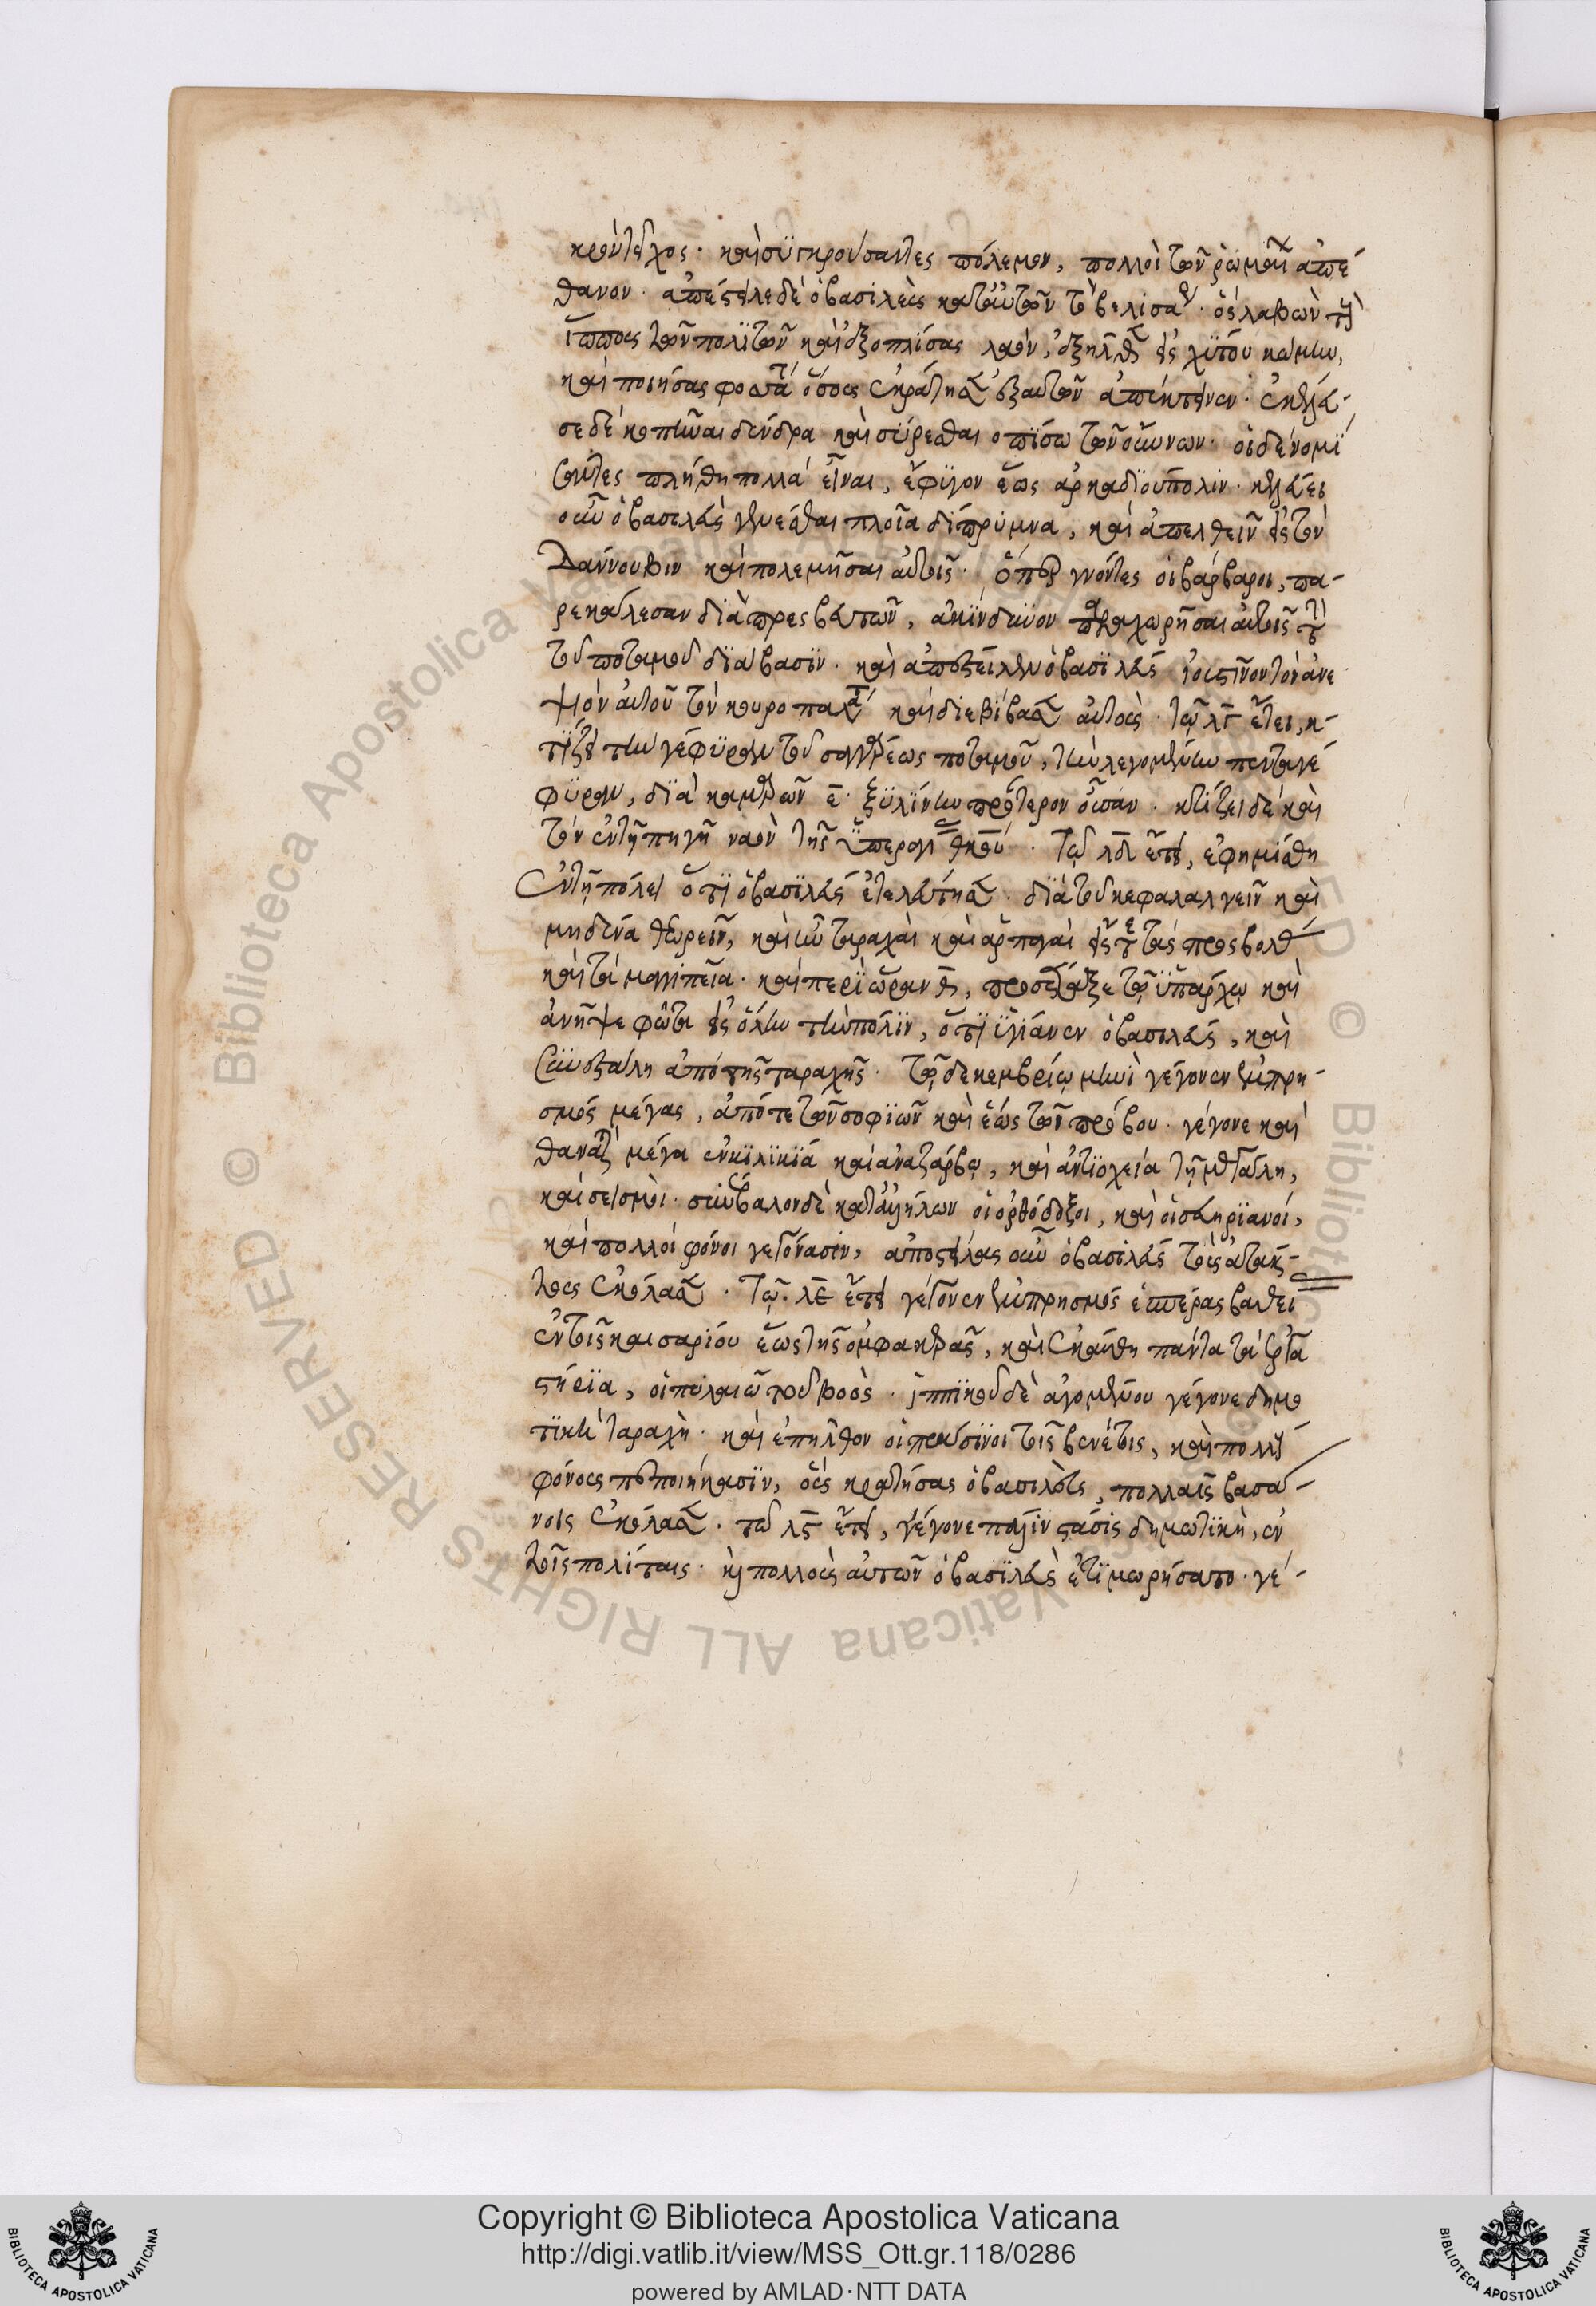 κρὸν τεῖχος· καὶ συγκρούσαντες πόλεμον, πολλοὶ τῶν ῥωμαίων ἀπέ-
θανον· ἀπέστειλε δὲ ὁ βασιλεὺς κατ' αὐτῶν τὸν βελισάριον· ὃς λαβὼν τοὺς
ἵππους τῶν πολϊτῶν καὶ ἐξοπλίσας λαὸν, ἐξῆλθεν εἰς χϋτου κώμην,
καὶ ποιήσας φοσσάτον ὅσους ἐκράτησεν ἐξ αὐτῶν ἀπέκτεινεν· ἐκέλευ-
σε δὲ κοπῆναι δένδρα καὶ σύρεσθαι οπϊσω τῶν οἰκείων· οἱ δὲ νομϊ
ζοντες πλήθη πολλὰ εἶναι, ἔφϋγον ἕως ἀρκαδϊουπολιν· κελεύει
οὖν ὁ βασιλεὺς γενέσθαι πλοῖα δίπρυμνα, καὶ ἀπελθεῖν εἰς τὸν
Δαννουβιν καὶ πολεμῆσαι αὐτοῖς· ὅπερ γνόντες οἱ βάρβαροι, πα-
ρεκάλεσαν δϊὰ πρεσβευτῶν, ἀκϊνδϋνον παραχωρῆσαι αὐτοῖς τὴν
τοῦ ποταμοῦ δϊάβασϊν· καὶ ἀποστείλας ὁ βασϊλεὺς ἰουστῖνον τὸν ἀνε
ψιὸν αὐτοῦ τὸν κουροπαλάτην καὶ διεβίβασεν αὐτοὺς· τῷ λγ ἔτει, κ-
τϊζει τὴν γέφϋραν τοῦ σαγγάρεως ποταμοῦ, τὴν λεγομένην πενταγέ
φϋραν, δϊὰ καμαρῶν ε· ξϋλϊνην πρότερον οὖσαν· κτίζει δὲ καὶ
τὸν ἐν τῇ πηγῇ ναὸν τῆς ὑπεραγίας θκου· Τῷ λδ ἔτει, ἐφημίσθη
ἐν τῇ πόλει ὅτϊ ὁ βασϊλεὺς ἐτελεύτησεν· δϊὰ τὸ κεφαλαλγεῖν καὶ
μηδένα θεωρεῖν, καὶ ἦν ταραχαὶ καὶ ἁρπαγαὶ εἴς τε τὰς προσβολὰς
καὶ τὰ μαγκιπεῖα· καὶ περϊ ὥραν θ, προσέταξε τῷ ὑπάρχῳ καὶ
ἀνῆψε φῶτα εἰς ὅλην τὴν πόλϊν, ὅτϊ ὑγίανεν ὁ βασιλεὺς, καὶ
ἐσυνεστάλη ἀπὸ τῆς ταραχῆς· τῷ δεκεμβρίῳ μηνὶ γέγονεν ἐμπρη-
σμὸς μέγας, ἀπό τε τῶν σοφϊῶν καὶ ἕως τῶν πρόβου· γέγονε καὶ
θανατϊκὸν μέγα ἐν κϊλϊκϊᾳ καὶ ἀναζάρβῳ, καὶ ἀντϊοχείᾳ τῇ μεγάλῃ,
καὶ σεισμοὶ· συνέβαλον δὲ κατ' ἀλλήλων οἱ ὀρθόδοξοι, καὶ οἱ σευηρϊανοὶ,
καὶ πολλοὶ φόνοι γεγόνασιν, ἀποστείλας οὖν ὁ βασιλεὺς τοὺς ἀτάκ-
τους ἐκόλασεν· Τῷ λε ἔτει γέγονεν ἐμπρησμὸς ἑσπέρας βαθείας
ἐν τοῖς καισαρίου ἕως τῆς ὀμφακερᾶς, καὶ ἐκαύθη πάντα τὰ ἐργα
στήρϊα, οἱ πυλαιῶνες τοῦ βοὸς· ἱππϊκοῦ δὲ ἀγομένου γέγονε δημο
τϊκὴ ταραχὴ· καὶ ἐπῆλθον οἱ πράσϊνοι τοῖς βενέτοις, καὶ πολλοὺς
φόνους πεποιήκασϊν, οὓς κρατήσας ὁ βασιλεὺς, πολλαῖς βασά-
νοις ἐκόλασεν· τῷ λς ἔτει, γέγονε πάλιν στάσις δημοτϊκὴ, ἐν
τοῖς πολίταις· καὶ πολλοὺς αὐτῶν ὁ βασϊλεὺς ἐτϊμωρήσατο· γέ-
Copyright © Biblioteca Apostolica Vaticana
http://digi.vatlib.it/view/MSS_Ott.gr.118/0286
powered by AMLAD·NTT DATA
BIBLIOTECA APOSTOLICA VATICANA
BIBLIOTECA APOSTOLICA VATICANA